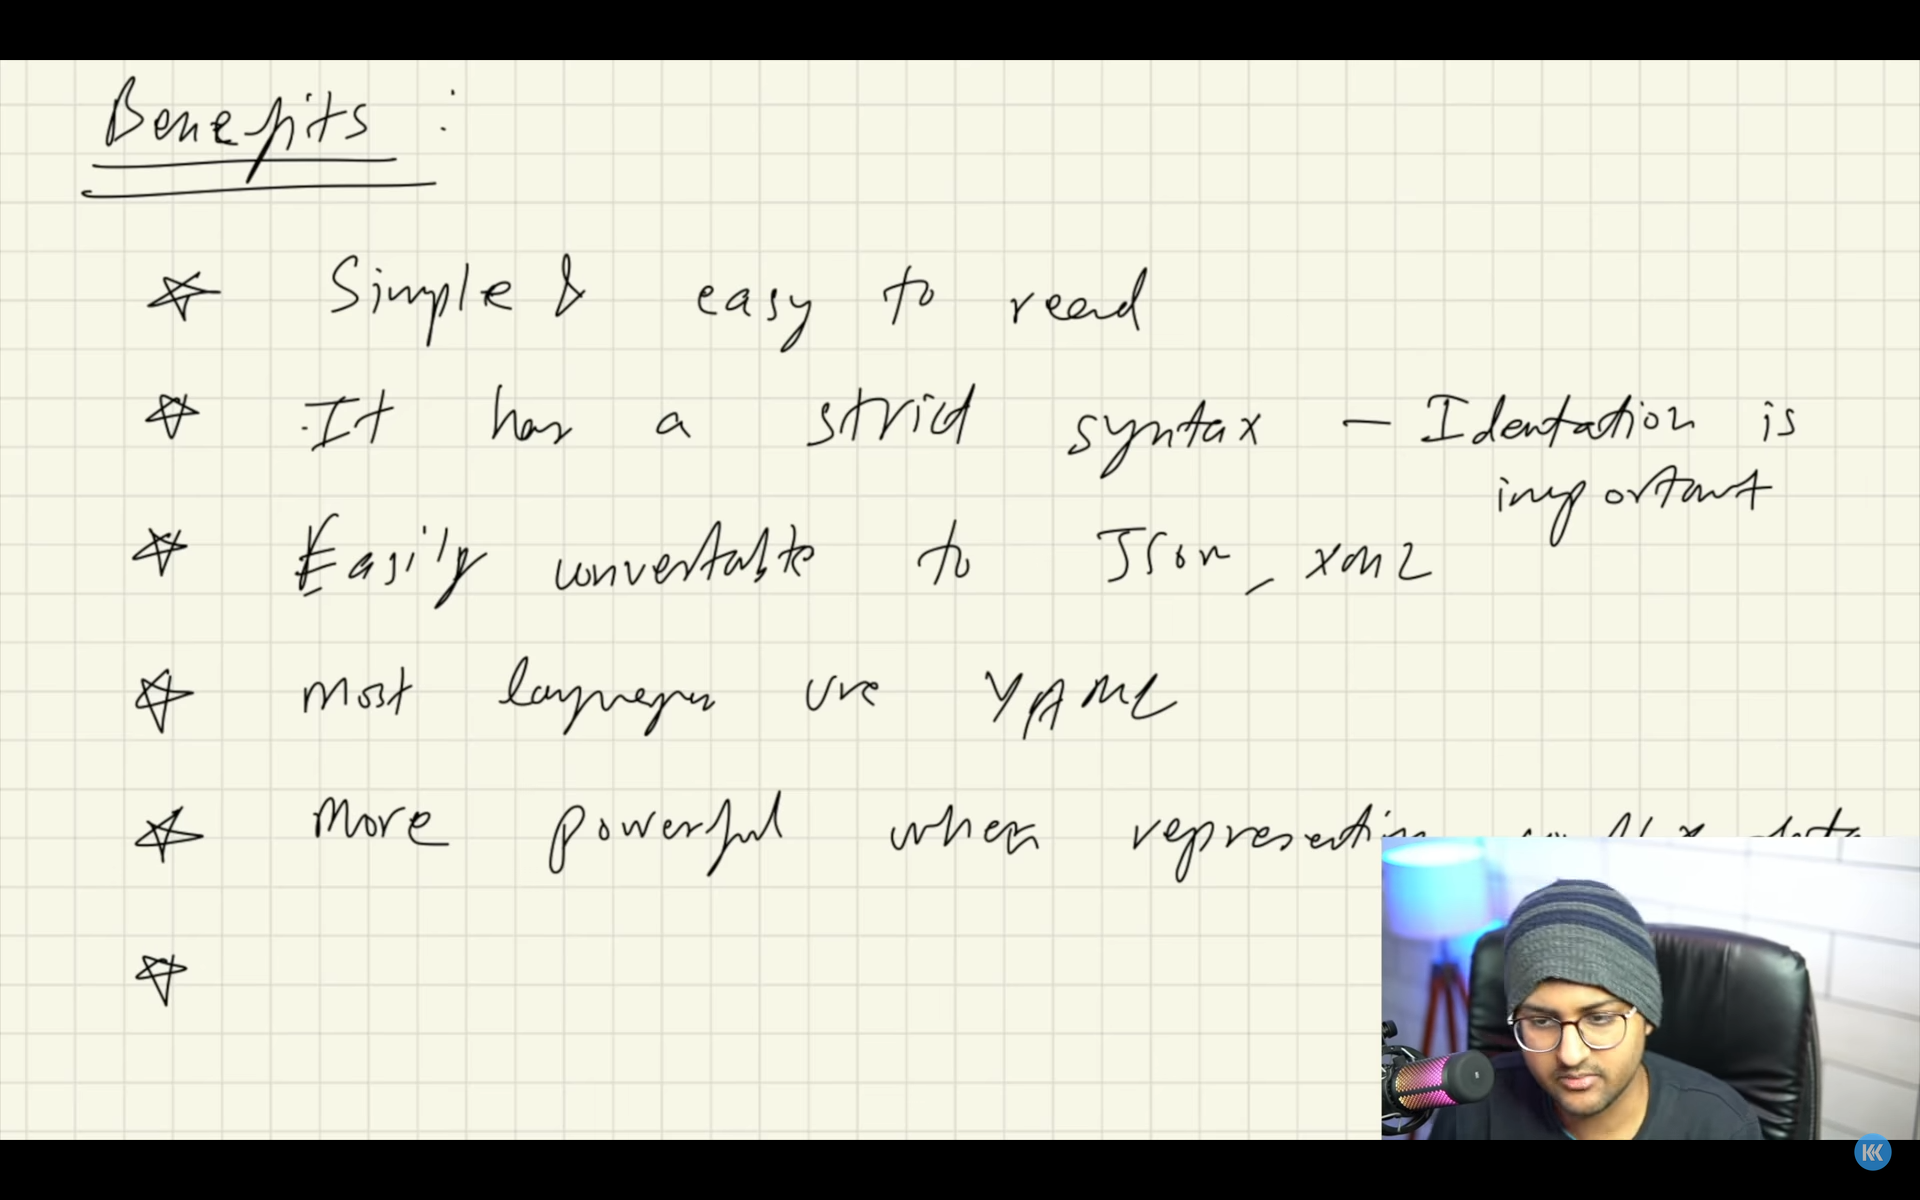 Benefits :
Simple & easy to read
It has a strict syntax - Identation is
important
Easily convertable to Json, XML
Most languages use YAML
More powerful when representing complex data
KK